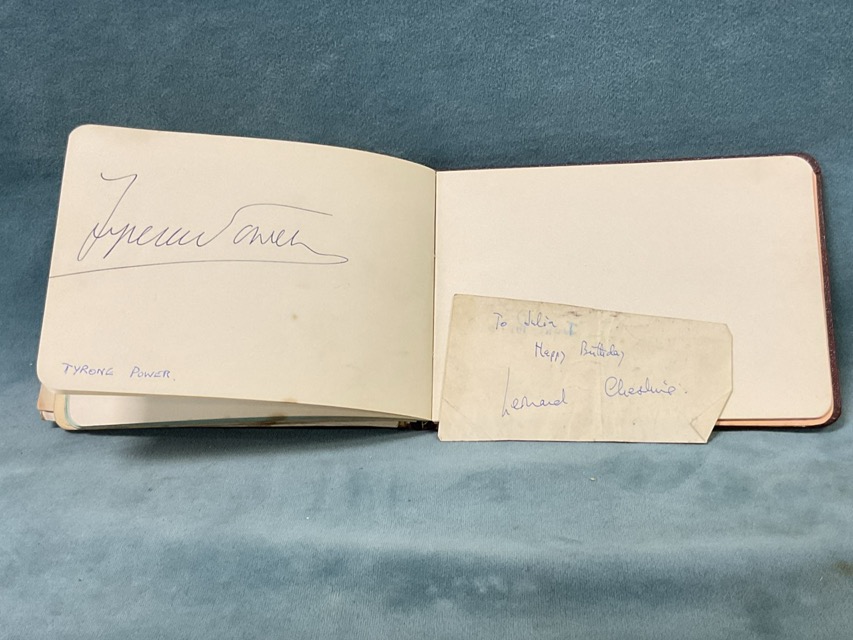 Tyrone Power
TYRONE POWER.
To Julia
Happy Birthday
Leonard Cheshire.